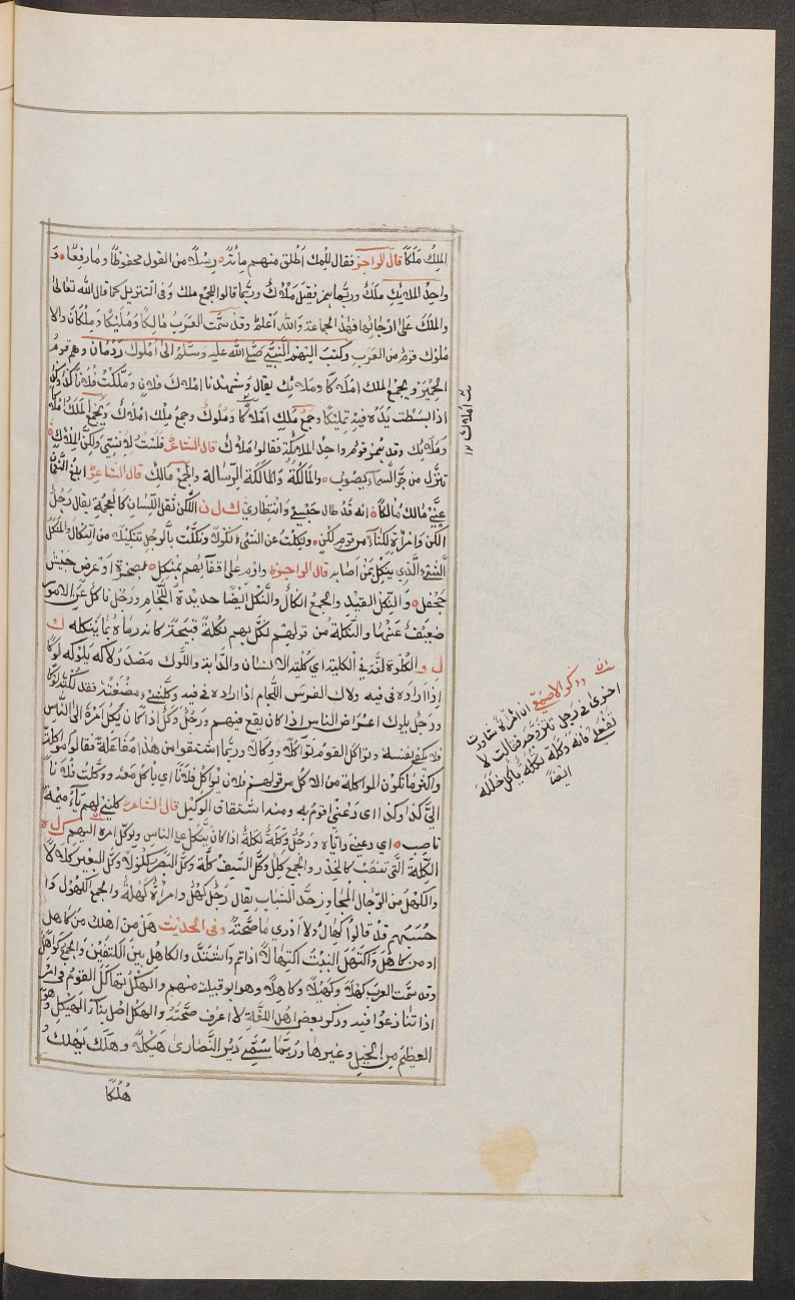 الملِكُ مَلَكاً قال الراجز فقال للملِك اَطْلق منهم مائةً رِسْلاً من القول محفوظاً وما رفعا و
واحِدُ الملائكةِ مَلَكٌ وربّما همز فقيل مَلْأَكٌ وربّما قالوا للجمع ملك وفى التنزيل كما قال الله تعالىٰ
والملَكُ علىٰ ارْجائها فهٰذا الجماعة والله اعلم وقد سمّت العَربُ مالِكًا ومُلَيْكًا ومِلكانَ والا
ملوك قوم من العَرب وكتب اليهم النّبيّ صلّى الله عليه وسلّم الى املوك رَدْمَان وهم قومٌ
الحِمْيَر ويجمع الملك املاكًا وملائك يقال وشهدنا املاك فلان ومَلّكت فلاناً
اذا بسَطت يَدَه فيه تمليكًا وجمع مَلِك املاكًا ومُلوك وجمع مِلْك املاك ويجمع الملَك املاكًا
وملائك وقد همز قوم واحد الملائكة فقالوا ملأك قال الشاعر فلسْتُ لإنسيّ ولكنّ لملأك
تنزّل من جوّ السّماء يصوب والمألَكة والمألُكة الرّسالة والجمع مآلك قال الشاعر ابلغ النّعمان
عنّي مألكاً انه قد طال حَبْسِي وانتظاري ك ل ن اللكن ثقل اللّسان كالعجمة يقال رجل
الكن وامراة لكناء من قوم لكن ونكلت عن الشيء نكولاً ونكلت بالرجل تنكيلاً من النكال والمنكل
الشيء الذي ينكل بمن اصابه قال الراجز وارم على اقفائهم بمنكل بصخرة او عرض جيش
جحفل والنِّكل القيد والجمع انكال والنكل ايضا حديدة اللجام ورجل ناكل عن الامور
ضعيف عنها والنكلة من قولهم نكل بهم نكلة قبيحة كانه رماه بما ينكله ك
ل و الكلوة لغة في الكلية اي كلية الانسان والدابة واللّوك مصدر لاكه يلوكه لوكًا
اذا اداره في فيه ولاك الفرس اللجام اذا اداره في فيه وكل شيء مضغته فقد لكته لوكًا
ورجل يلوك اعراض الناس اذا كان يقع فيهم ورجل وكل اذا كان يكل امره الى الناس
فلا يكفي نفسه وتواكل القوم تواكلا ووكالا وربما اشتقوا من هذا مفاعلة فقالوا مواكلة
واكثر ما تكون المواكلة من الاكل من قولهم فلان يواكل فلانا اي ياكل معه ووكلت فلانا
الى كذا وكذا اي دعني اقوم به ومنه اشتقاق الوكيل قال الشاعر كليني لهم يا اميمة
ناصب اي دعيني واياه ورجل وكلة تكلة اذا كان يتكل على الناس ويوكل امره اليهم ك ل ه
الكلّة التي تنصب كالخدر والجمع كلل وكل السّيف كلة وكل البصر كلولا وكل البعير كلالا
والكهل من الرّجال المجاوز حد الشباب يقال رجل كهل وامراة كهلة والجمع الكهول وا
حسبهم قد قالوا كهال ولا ادري ما صحته وفى الحديث هل من اهلك من كاهل
او من كاهَلَ واكتهل النبت اكتهالاً اذا تم واشتد والكاهل بين الكتفين والجمع كواهل
وقد سمّت العرب كهلا وكهيلا وكاهلا وهو ابو قبيلة منهم والهكل تهاكل القوم في امر
اذا تنازعوا فيه وذكر بعض اهل اللغة لا اعرف صحته والهكل اصل بناء الهيكل وهو
العظيم من الخيل وغيرها وربّما سمّي دير النّصارىٰ هيكلا وهلك يهلك
هُلْكًا
وذكر الاصمعي ان امراة شاورت
اخرى في رجل تتزوجه فقالت لا
تفعلي فانه وكلة تكلة ياكل خلله
ايضا